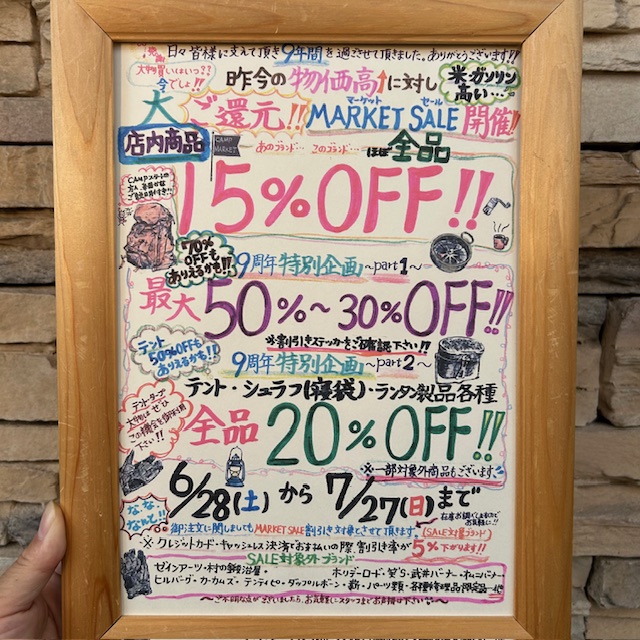 日々皆様に支えて頂き9年間を過ごさせて頂きました。ありがとうございます!!
大物買いはいつ??
今でしょ!!
昨今の物価高↑に対し
米・ガソリン
高い…
大ご還元!!
マーケット セール
MARKET SALE 開催!!
店内商品
CAMP
MARKET
あのブランド… このブランド…
ほぼ全品
15%OFF!!
70%
OFFも
ありえるかも!!
9周年特別企画〜part1〜
最大50%〜30%OFF!!
※割引きステッカーをご確認下さい!!
テント
50%OFFも
ありえるかも!!
9周年特別企画〜part2〜
テント・シュラフ(寝袋)・ランタン製品各種
テント・タープ
大物はぜひ
この機会を御利用
下さい!!
全品20%OFF!!
※一部対象外商品もございます。
6/28(土)から7/27(日)まで
なな
なんと!!
御注文に関しましてもMARKET SALE割引き対象とさせて頂きます。
(SALE対象ブランド)
※クレジットカード・キャッシュレス決済でお支払いの際、割引き率が5%下がります!!
SALE対象外ブランド
ゼインアーツ・村の鍛冶屋・
ホリデーロード・笑's・武井バーナー・
ヒルバーグ・
薪・パーツ類・
〜ご不明な点がございましたら、お気軽にスタッフまでお声掛け下さい〜